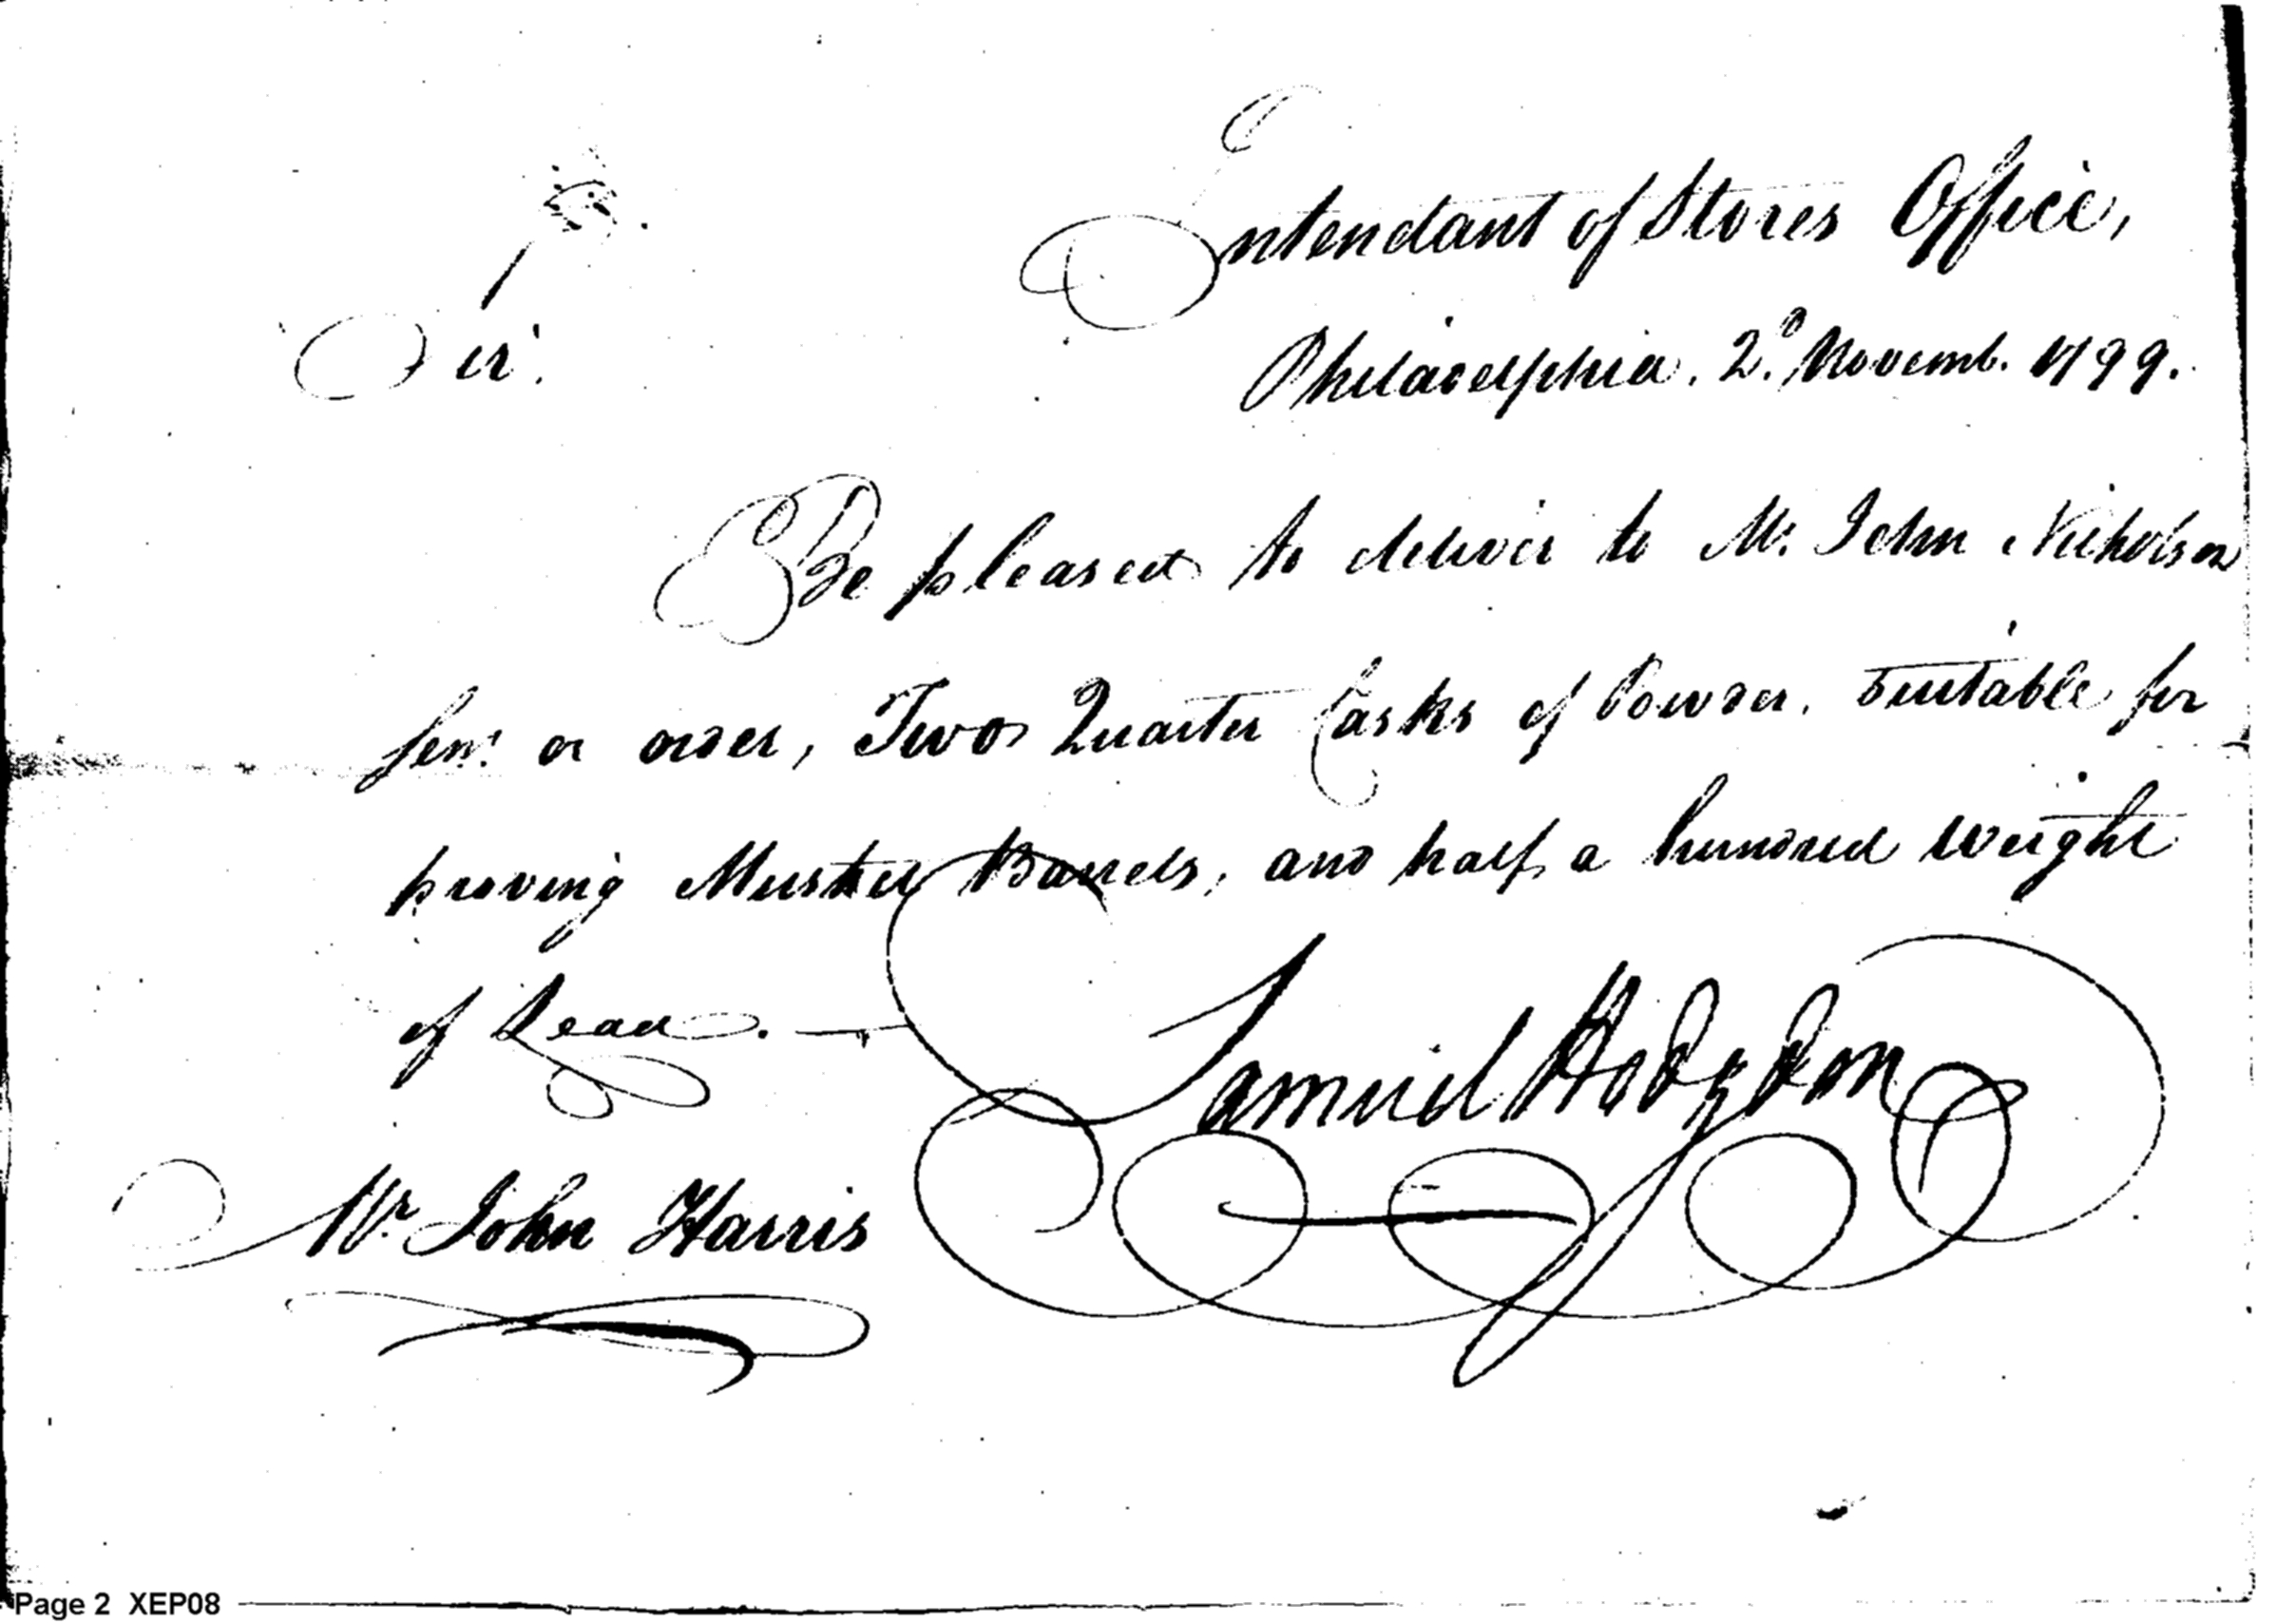 Intendant of Stores Office,
Philadelphia, 2d. Novemb. 1799.
Sir.
Be pleased to deliver to Mr. John Nicholson
Senr. or order, Two Quarter Casks of Powder, Suitable for
proving Musket Barrels, and half a hundred weight
of Lead.
Samuel Hodgdon
Mr. John Harris
Page 2 XEP08